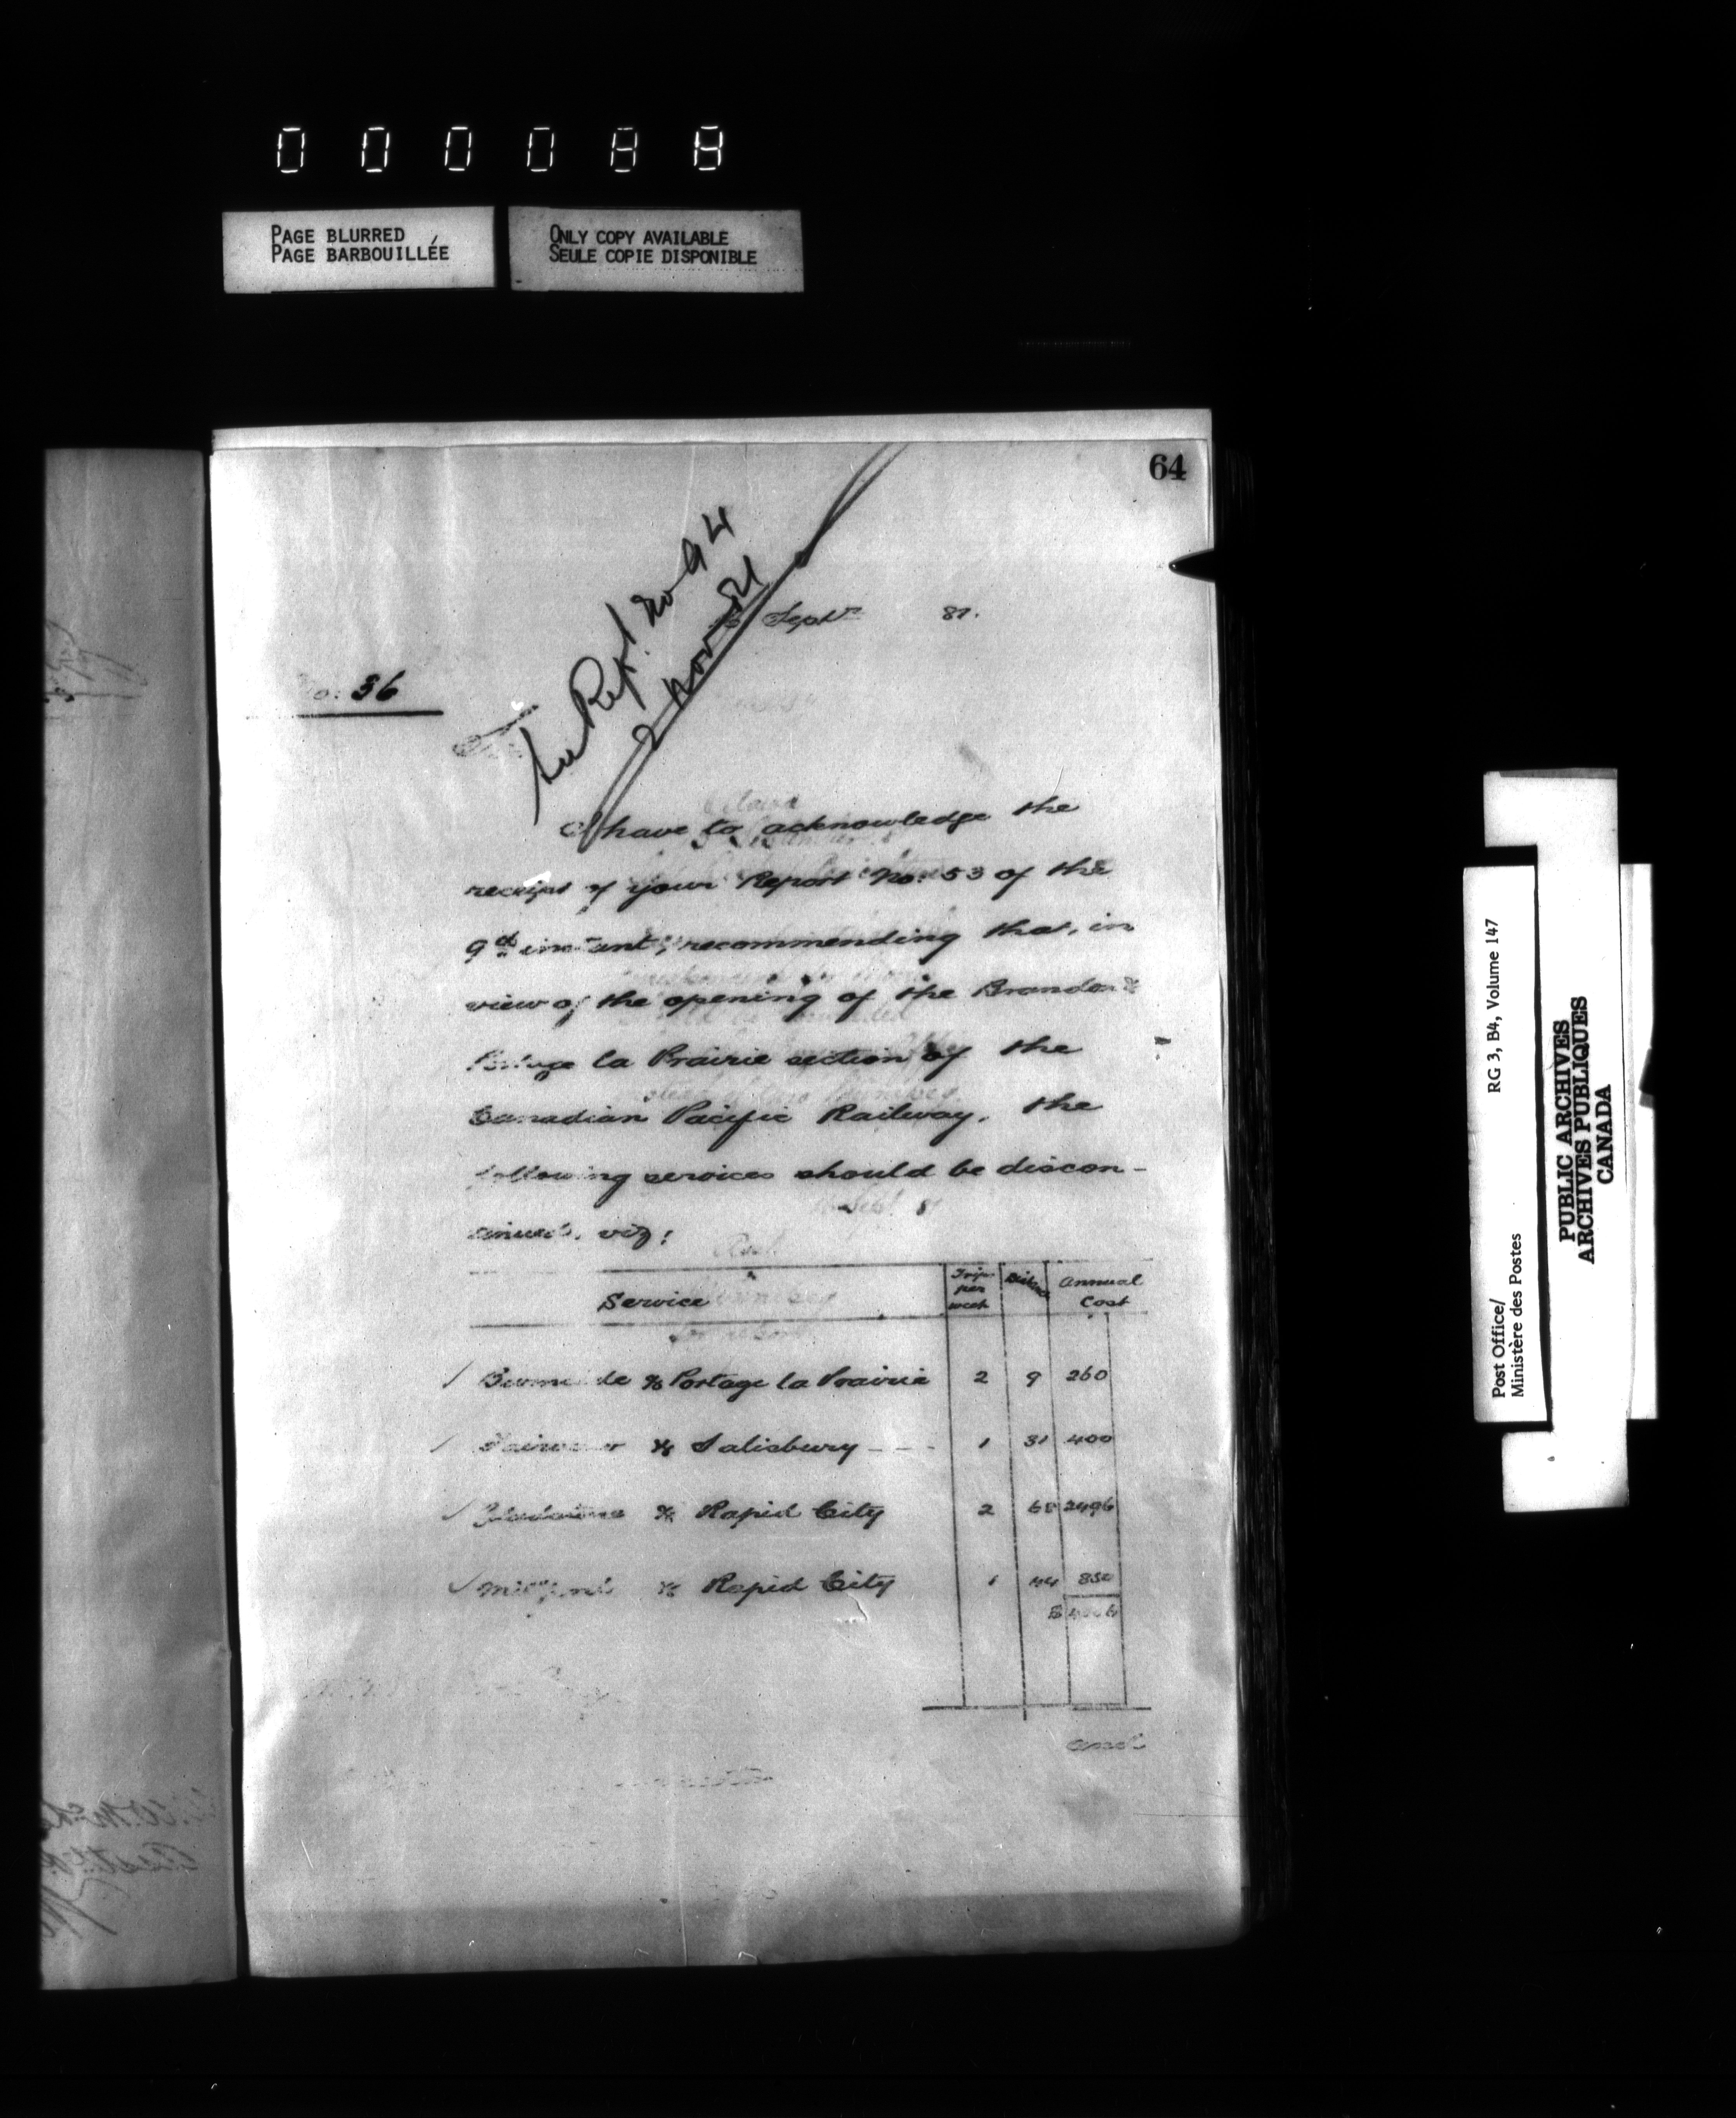 000088
PAGE BLURRED
PAGE BARBOUILLÉE
ONLY COPY AVAILABLE
SEULE COPIE DISPONIBLE
64
See Rept. No 94
2 Nov 81
16 Septr 81.
No. 36
I have to acknowledge the
receipt of your Report No. 53 of the
9th instant, recommending that, in
view of the opening of the Brandon &
Portage la Prairie section of the
Canadian Pacific Railway, the
following services should be discon-
tinued, viz:
Service Trips per week Distance Annual Cost
✓ Burnside & Portage la Prairie 2 9 260
✓ & Salisbury - - - 1 31 400
✓ Gladstone & Rapid City 2 68 2496
✓ Milford & Rapid City 1 44 850
and
Post Office/
Ministère des Postes
RG 3, B4, Volume 147
PUBLIC ARCHIVES
ARCHIVES PUBLIQUES
CANADA